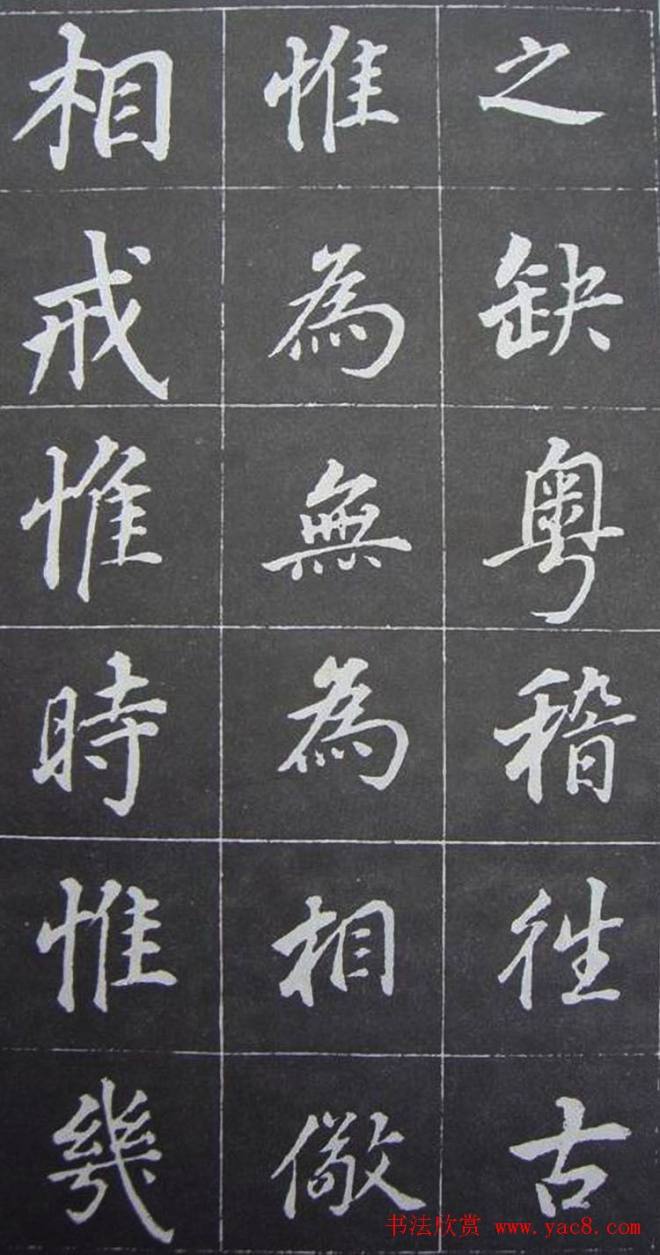 之缺粤稽徃古
惟為無為相儆
相戒惟時惟幾
书法欣赏 www.yac8.com